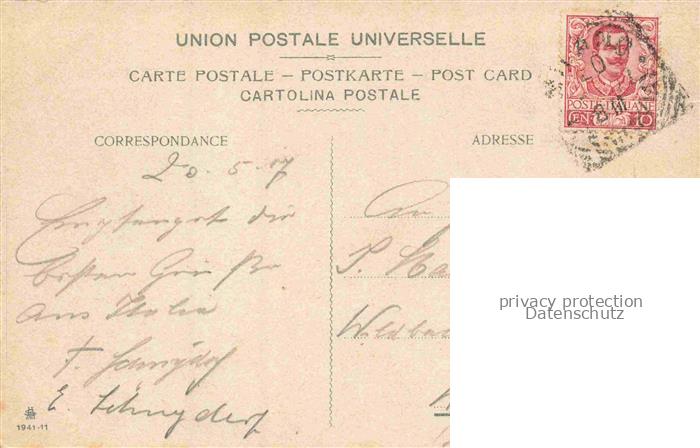 UNION POSTALE UNIVERSELLE
CARTE POSTALE – POSTKARTE – POST CARD
CARTOLINA POSTALE
POSTE ITALIANE
CENT 10
CORRESPONDANCE
ADRESSE
20. 5. 07
Empfanget die
besten Grüße
aus Italia
F. Schnyder
E. Schnyder
An
S.
privacy protection
Datenschutz
1941-11